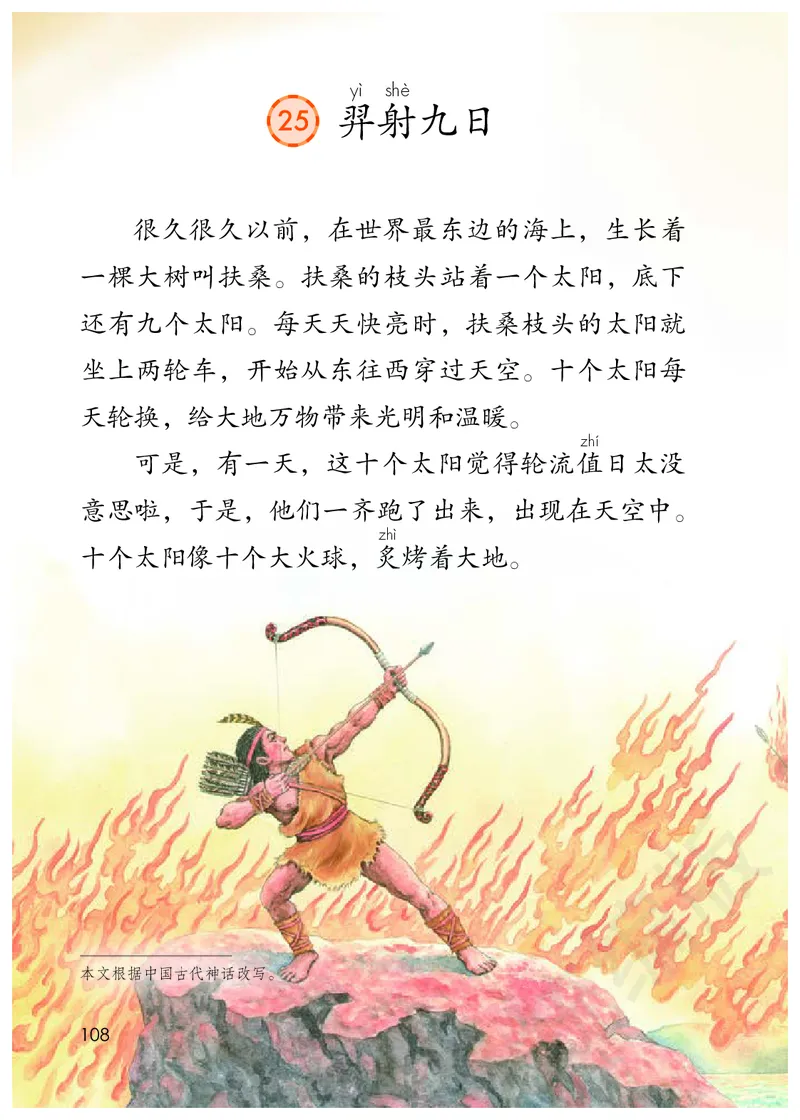 yì shè
25 羿射九日
很久很久以前，在世界最东边的海上，生长着
一棵大树叫扶桑。扶桑的枝头站着一个太阳，底下
还有九个太阳。每天天快亮时，扶桑枝头的太阳就
坐上两轮车，开始从东往西穿过天空。十个太阳每
天轮换，给大地万物带来光明和温暖。
zhí
可是，有一天，这十个太阳觉得轮流值日太没
意思啦，于是，他们一齐跑了出来，出现在天空中。
zhì
十个太阳像十个大火球，炙烤着大地。
本文根据中国古代神话改写。
108